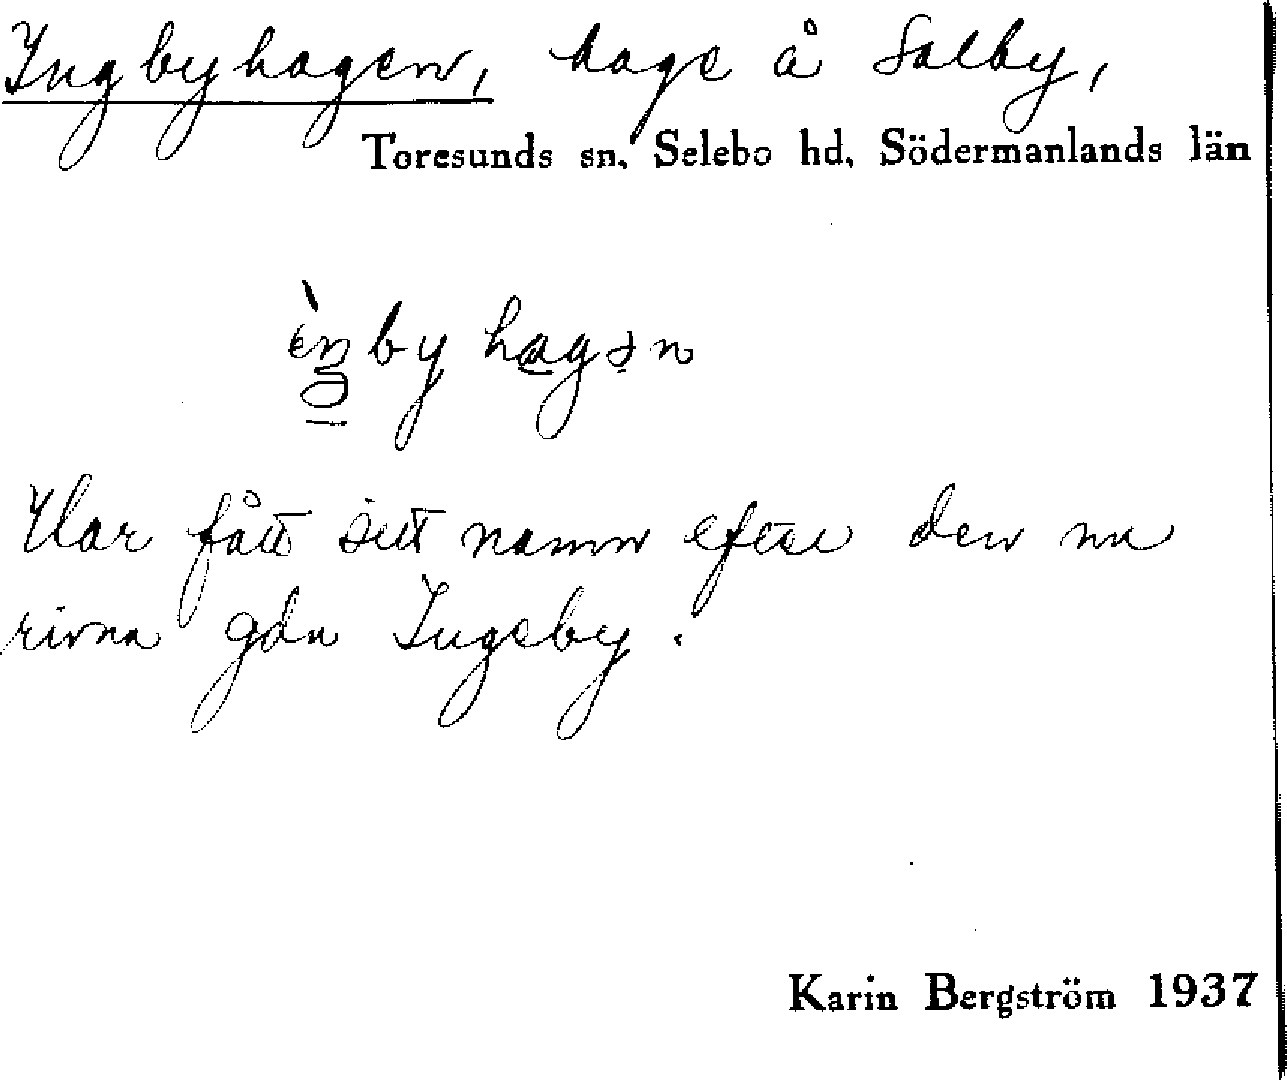 Ingbyhagen, hage å Salby,
Toresunds sn, Selebo hd, Södermanlands län
Har fått sitt namn efter den nu
rivna gdn Ingeby.
Karin Bergström 1937